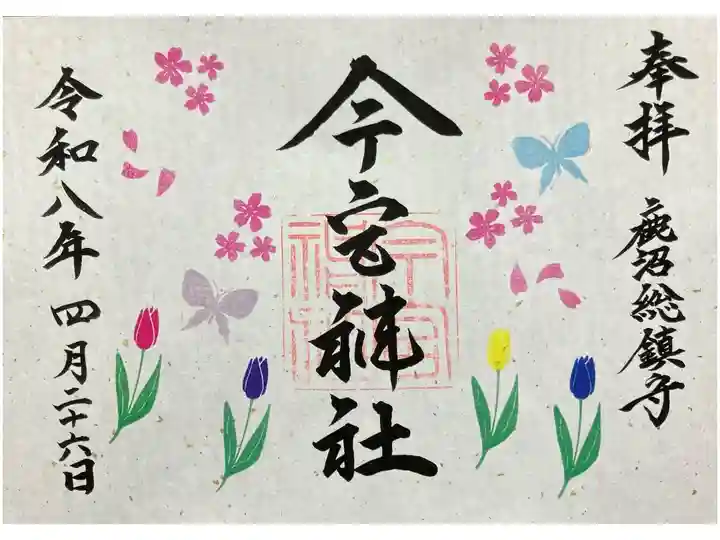 奉拝
鹿沼総鎮守
今宮神社
今宮
神社
令和八年四月二十六日